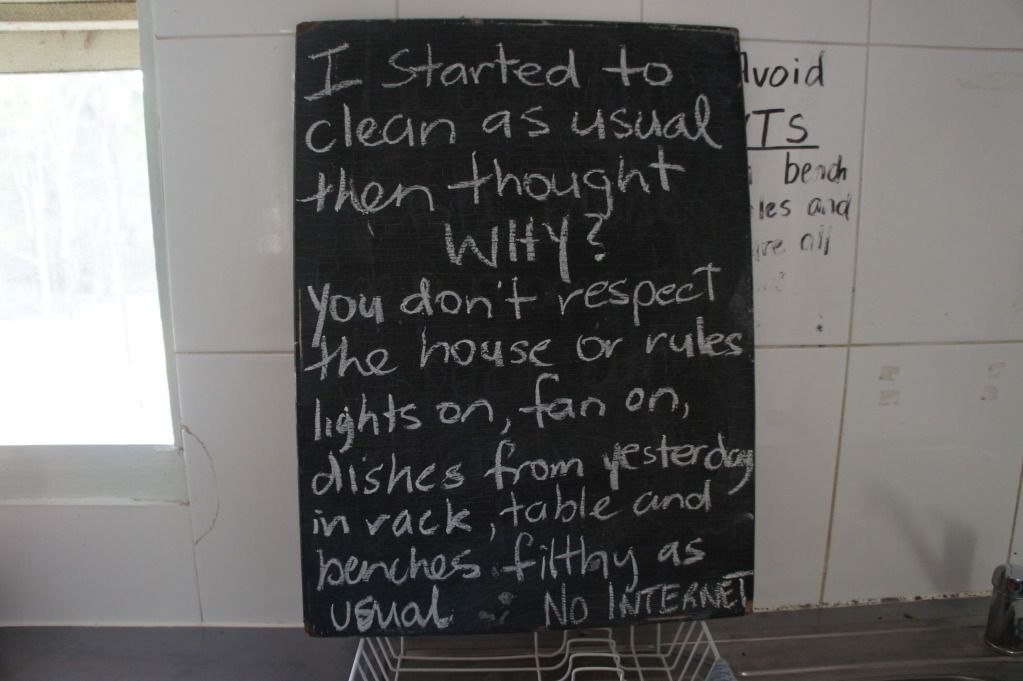 I started to
clean as usual
then thought
WHY?
you don't respect
the house or rules
lights on, fan on,
dishes from yesterday
in rack, table and
benches filthy as
usual NO INTERNET
void
TS
bench
les and
all